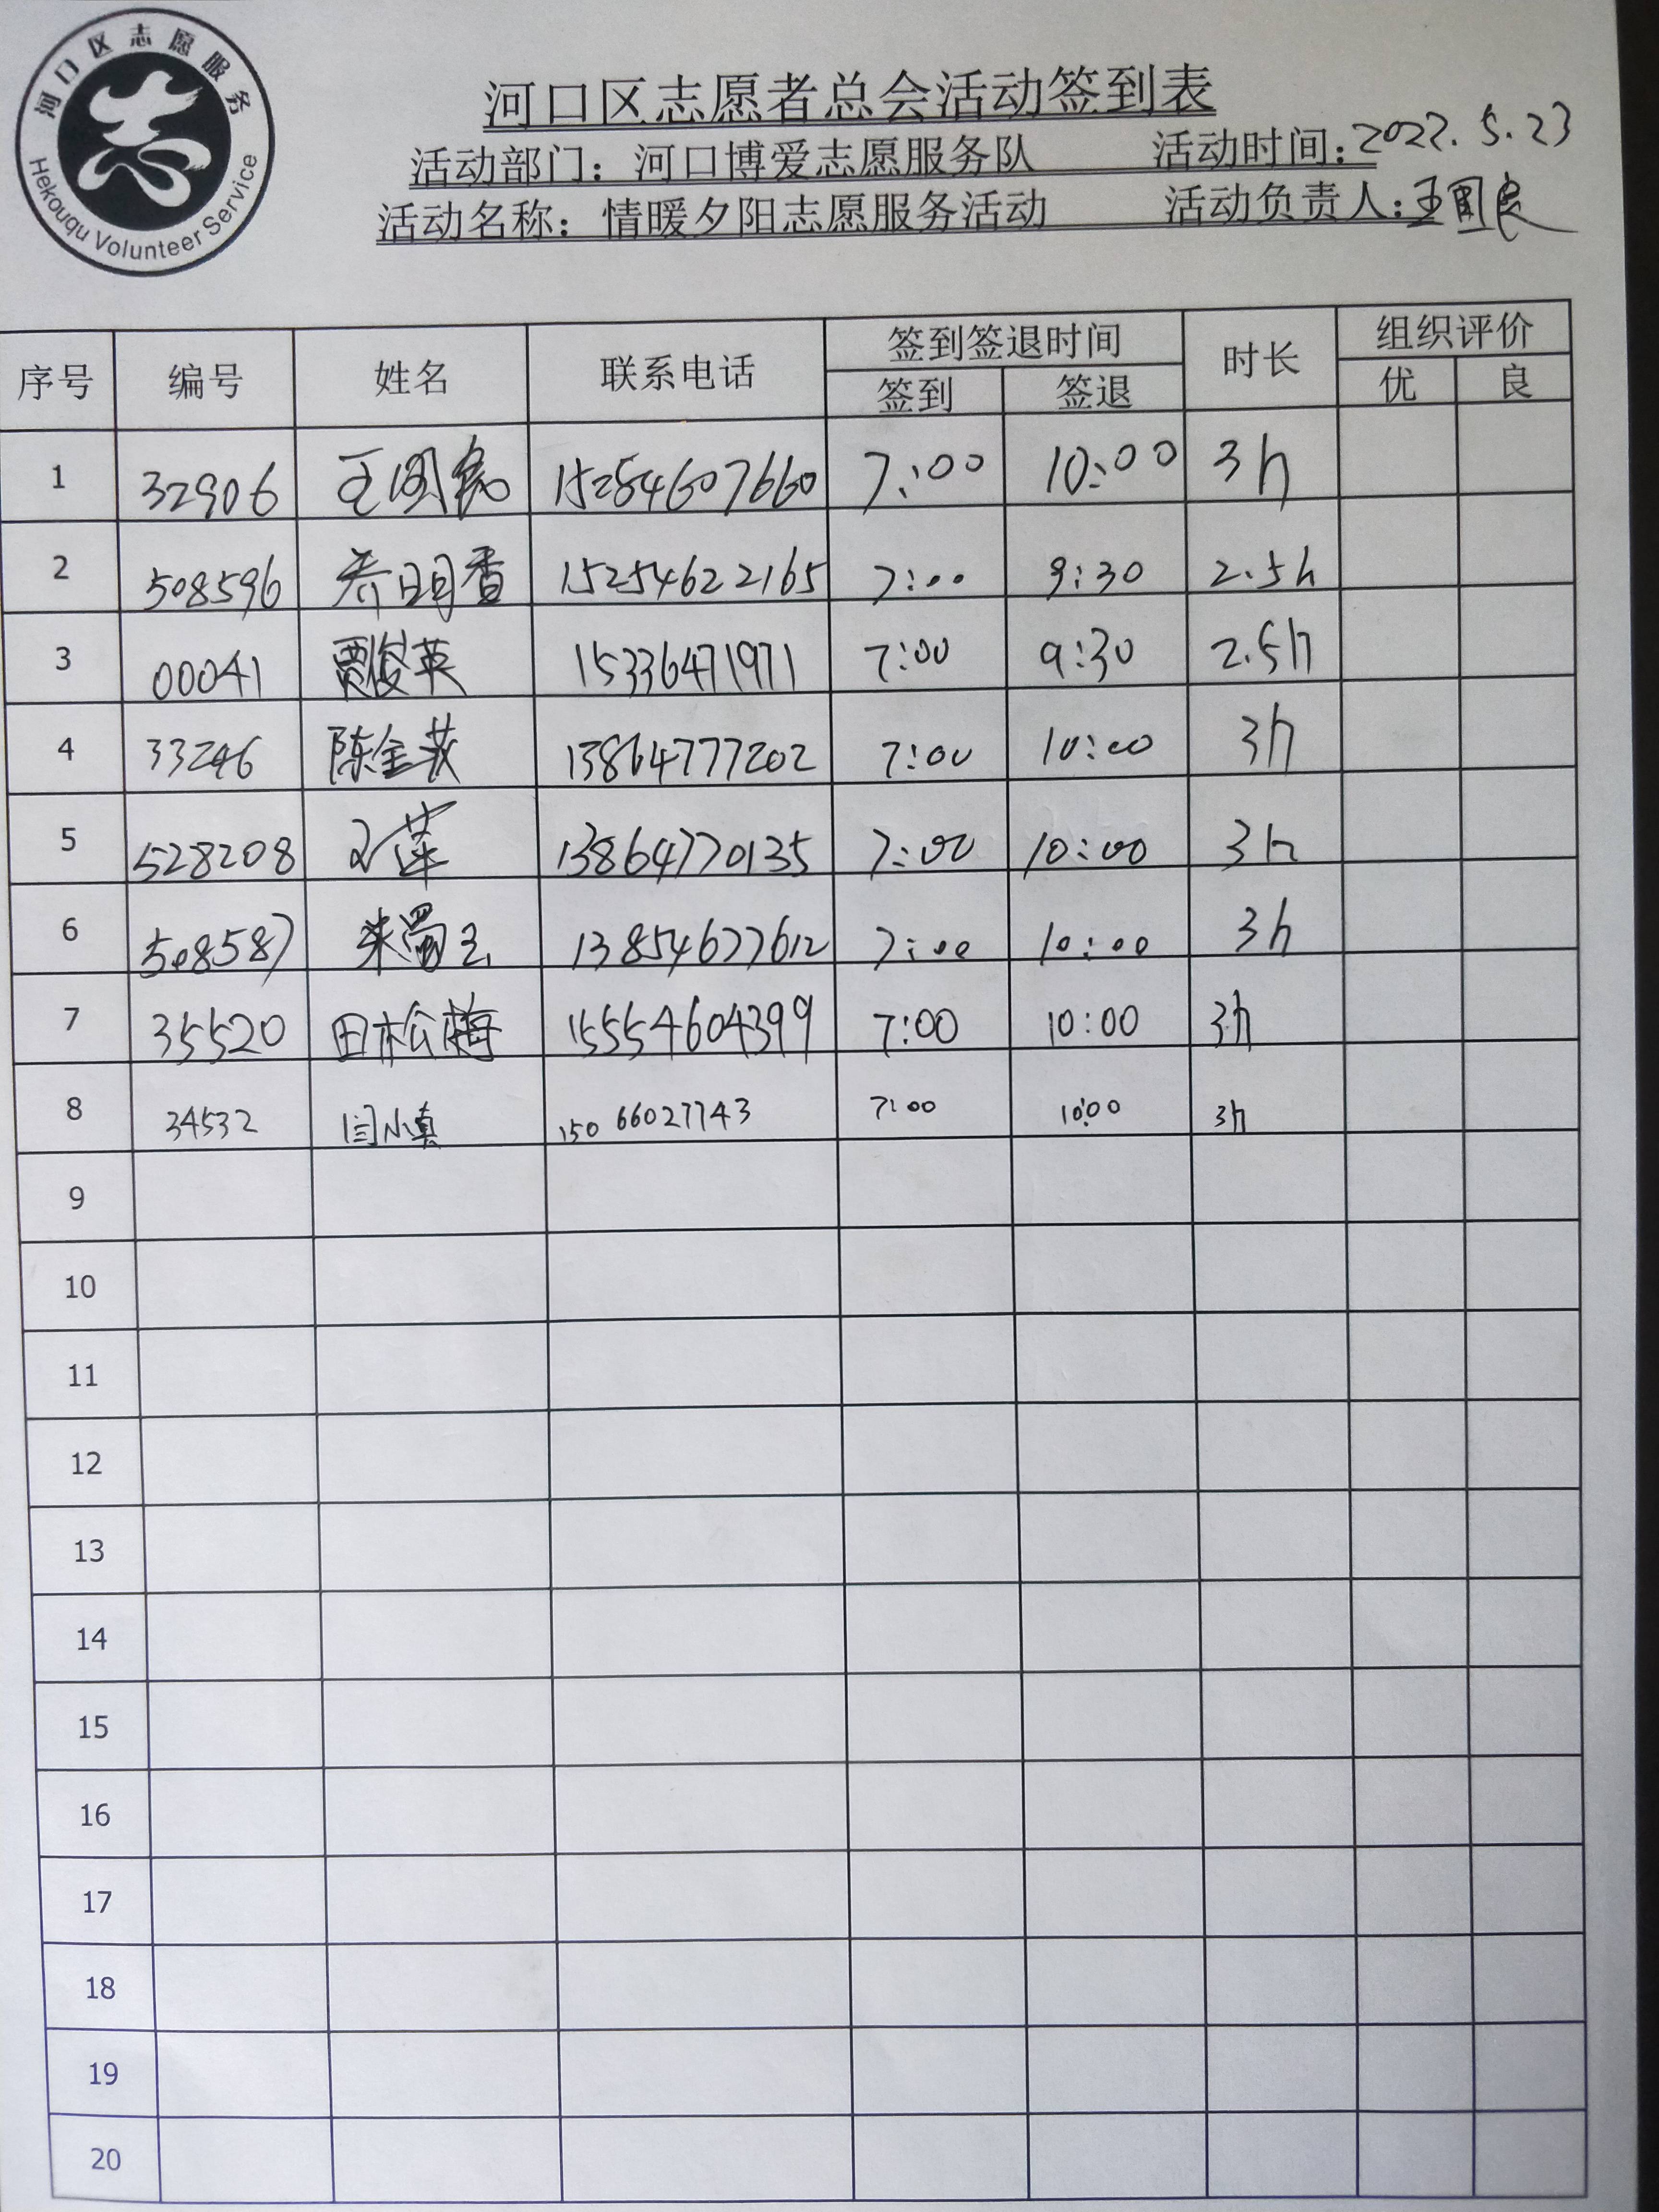 河口区志愿服务
Hekouqu Volunteer Service
河口区志愿者总会活动签到表
活动部门：河口博爱志愿服务队 活动时间：2022.5.23
活动名称：情暖夕阳志愿服务活动 活动负责人：王国良
序号 编号 姓名 联系电话 签到签退时间 时长 组织评价
签到 签退 优 良
1 32906 王国 15254607660 7:00 10:00 3h
2 508596 明香 15254622165 7:00 9:30 2.5h
3 00041 贾俊英 15336471971 7:00 9:30 2.5h
4 33246 陈金 13864777202 7:00 10:00 3h
5 528208 13864770135 7:00 10:00 3h
6 508587 13854677612 7:00 10:00 3h
7 35520 田松梅 15554604399 7:00 10:00 3h
8 34532 闫小真 15066027743 7:00 10:00 3h
9
10
11
12
13
14
15
16
17
18
19
20